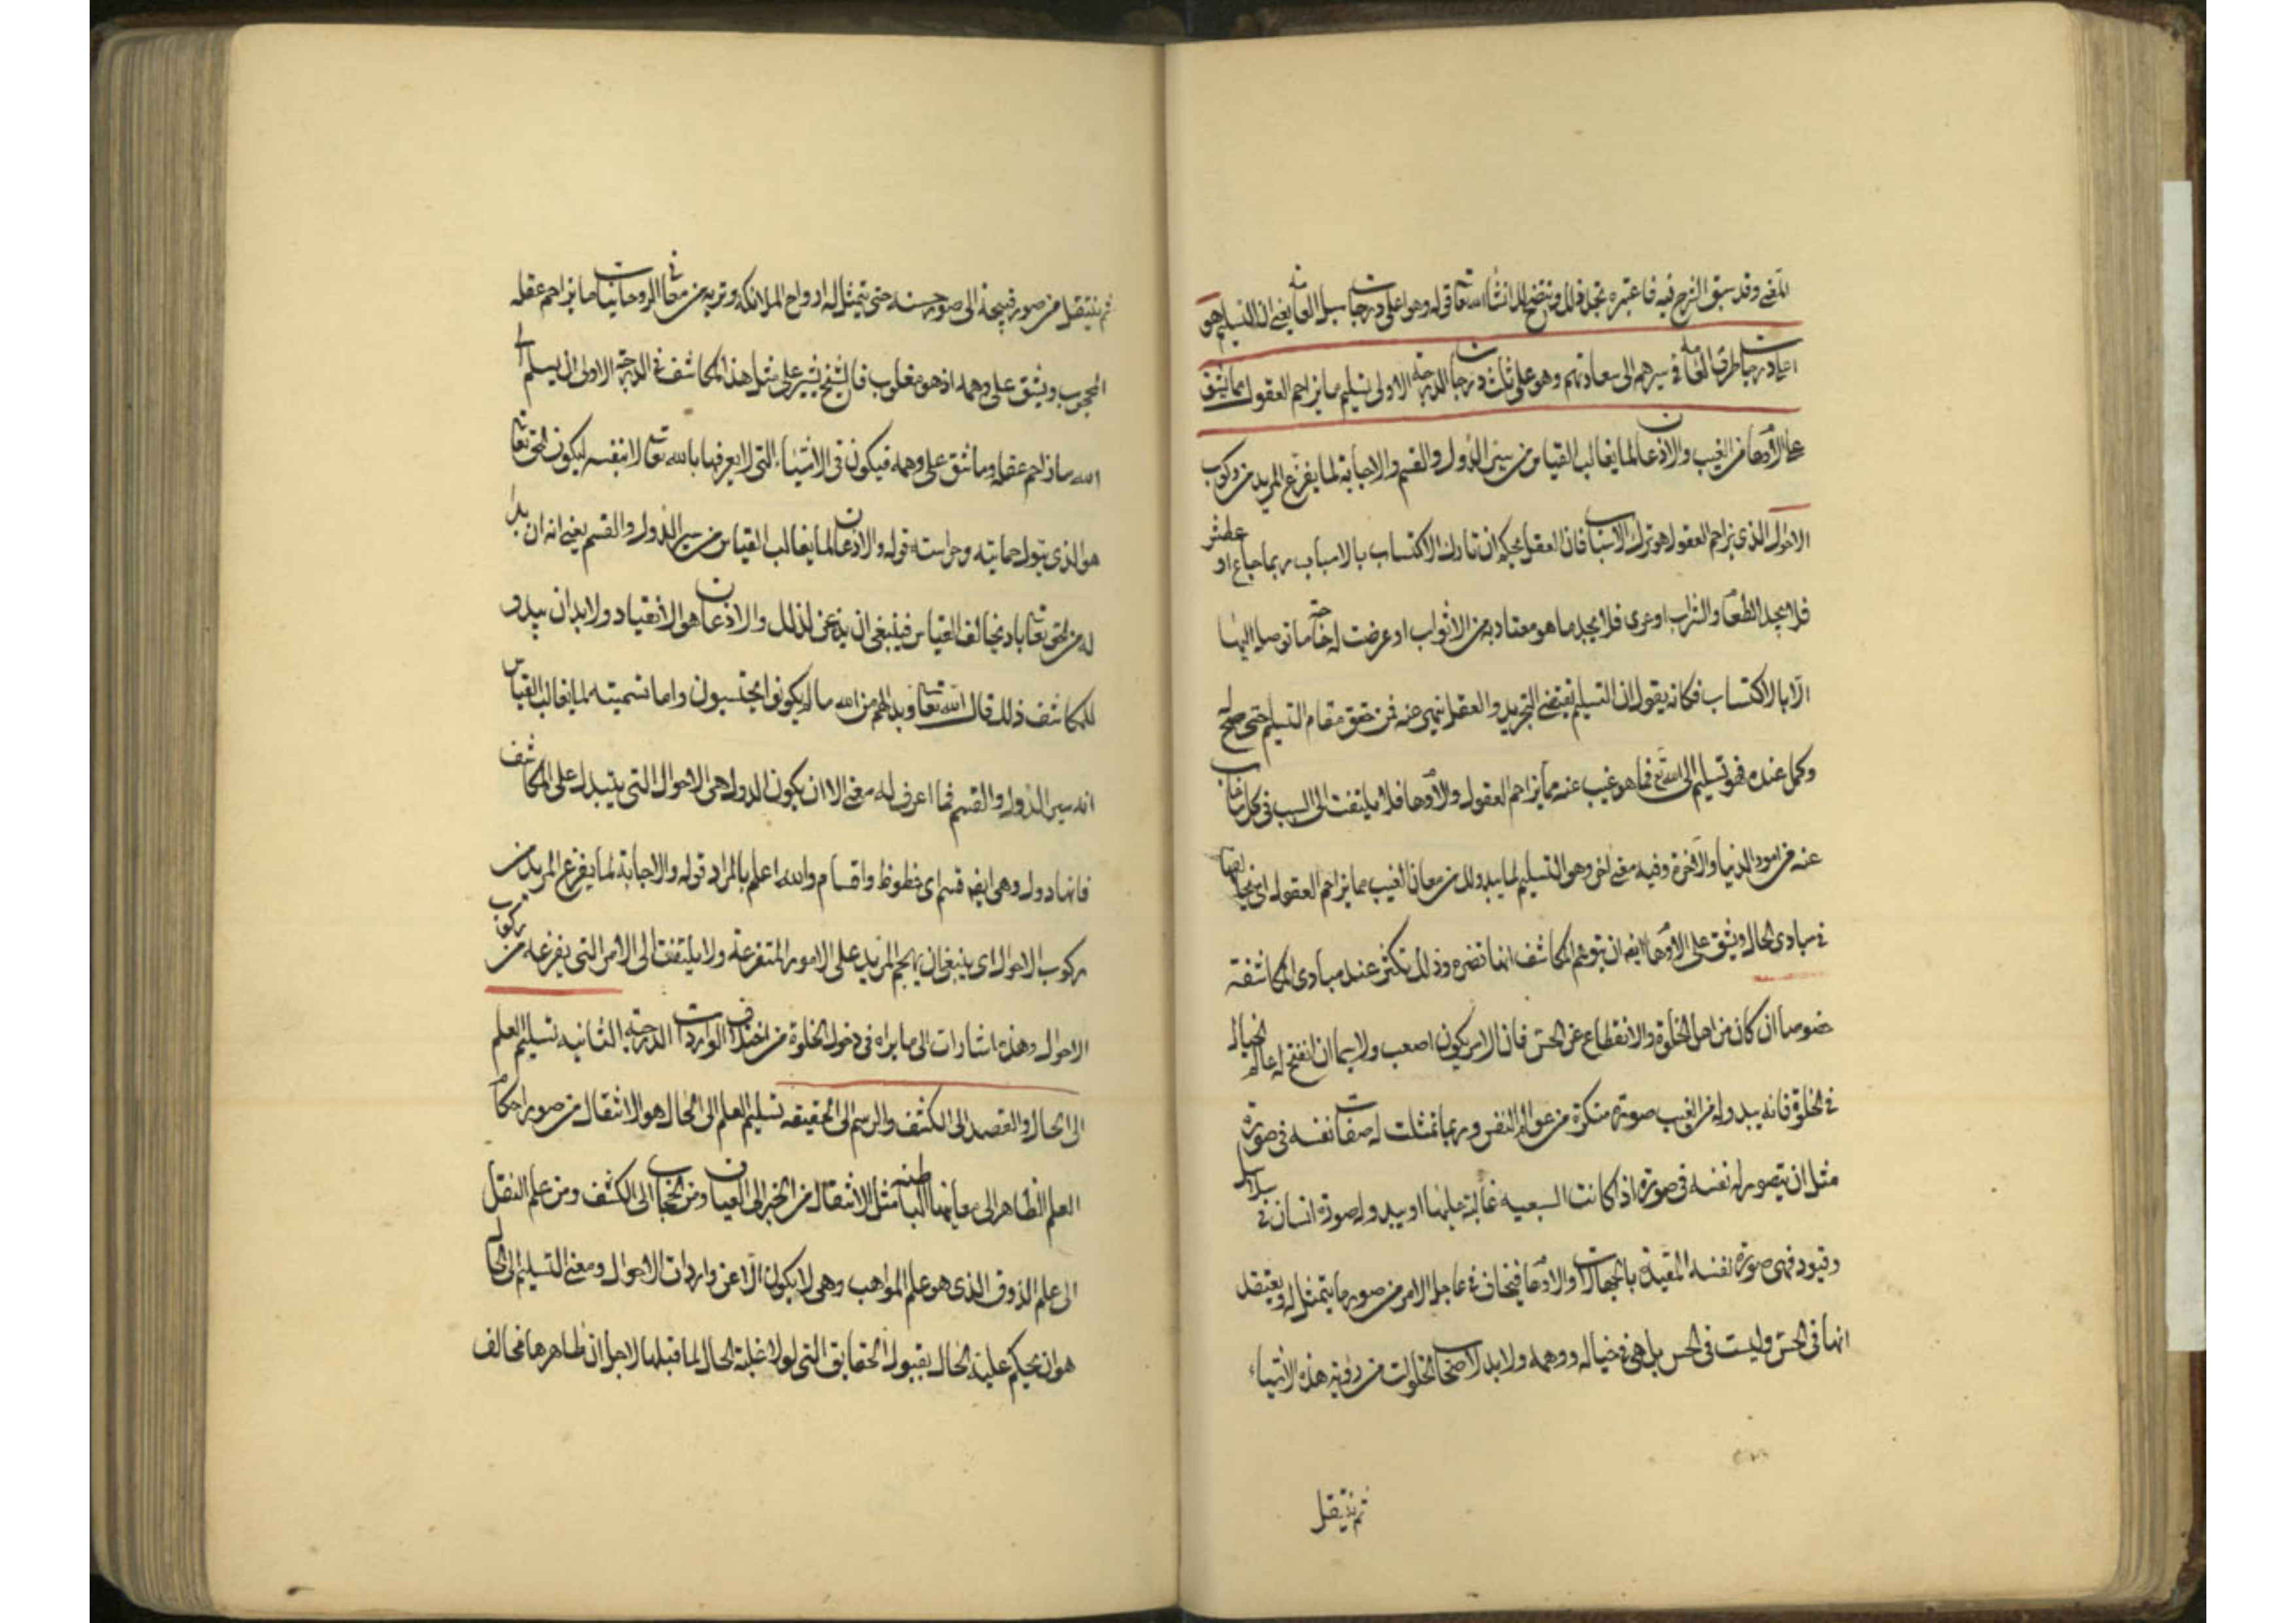 المعنى وقد سبق الشرح فيه فاعتبره تجد ذلك ويتضح لك ان شاء الله تعا قوله وهو اعلى درجات سبل العامة يعنى ان التسليم هو
اعلى درجات طرق العامة فى سيرهم الى سعادتهم وهو على ثلث درجات الدرجة الاولى تسليم ما يزاحم العقول مما يشق
على الاوهام من الغيب والاذعان لما يغالب القياس من سير الدول والقسم والاجابة لما يفزع المريد من ركوب
الاحوال الذى يزاحم العقول هو ترك الاسباب فان العقل يحكم ان تارك الاكتساب بالاسباب ربما جاع او عطش
فلا يجد الطعام والشراب او عرى فلا يجد ما هو معتاد به من الاثواب او عرضت له حاجة ما توصل اليها
الا بالاكتساب فكانه يقول ان التسليم يقتضى التجريد والعقل ينهى عنه فمن حقق مقام التسليم حتى صلح له
وكمل عنده فهو تسليم الى الله تع فما هو غيب عنه مما يزاحم العقول والاوهام فلا يلتفت الى السبب فى كل ما غاب
عنه من امور الدنيا والآخرة وفيه معنى آخر وهى التسليم لما يبدو لك من معانى الغيب مما يزاحم العقول اى يخالفها
فى مبادى الحال ويشق على الاوهام ايضا ان يتوهم المكاشف انها تضره وذلك تكثر عند مبادى المكاشفة
خصوصا ان كان من اهل الخلوة والانقطاع عن الحس فان الامر يكون اصعب ولا سيما ان انفتح له عالم الخيال
فى الخلوة فانه يبدو له من الغيب صورة منكرة من عوالم النفس وربما تمثلت له صفات نفسه فى صورة
مثل ان يتصور له نفسه فى صورة اذا كانت السبعيه غالبة عليها او يبدو له صورة انسان فى سلاسل
وقيود فهى صورة نفسه المقيدة بالجهالات والاوهام فيخاف فى عاجل الامر من صور ما يتمثل له ويعتقد
انها فى الحس وليست فى الحس بل هى فى خياله ووهمه ولا بد لاصحاب الخلوات من رؤية هذه الاشياء
ثم ينتقل
ثم ينتقل من صور قبيحة الى صور حسنه حتى يتمثل له ارواح الملائكه وتريه من معانى الروحانيات ما يزاحم عقله
المحجوب ويشق على وهمه اذ هو مغلوب فالشيخ يشير على مثل هذا المكاشف فى الدرجة الاولى ان يسلم الى
الله ما زاحم عقله وما شق على وهمه فيكون فى الاشياء التى لا يعرفها بالله تعا لا بنفسه ليكون الحق تعا
هو الذى يتولى حمايته وحراسته قوله والاذعان لما يغالب القياس من سير الدول والقسم يعنى انه ان بدا
له من الحق تعا باد يخالف القياس فينبغى ان يذعن لذلك والاذعان هو الانقياد ولا بد ان يبدو
للمكاشف ذلك قال الله تعا وبدا لهم من الله ما لم يكونوا يحتسبون واما تسميته لما يغالب القياس
انه سير الدول والقسم فما اعرف له معنى الا ان يكون الدول هى الاحوال التى يتبدل على المكاشف
فانها دول وهى ايضا قسم اى حظوظ واقسام والله اعلم بالمراد قوله والاجابة لما يفزع المريد من
ركوب الاحوال اى ينبغى ان يهجم المريد على الامور المتفرعة ولا يلتفت الى الامر التى يفزعه من ركوب
الاحوال وهذه اشارات الى ما يراه فى دخول الخلوة من اختلاف الواردات الدرجة الثانيه تسليم العلم
الى الحال والقصد الى الكشف والرسم الى الحقيقه تسليم العلم الى الحال هو الانتقال من صور احكام
العلم الظاهر الى معانيها الباطنه مثل الانتقال من الخبر الى العيان ومن الحجاب الى الكشف ومن علم النقل
الى علم الذوق الذى هو علم المواهب وهى لا يكون الا عن واردات الاحوال ومعنى التسليم الى الحال
هو ان يحكم عليه الحال بقبول الحقايق التى لولا غلبة الحال لما قبلها لاجل ان ظاهرها مخالف